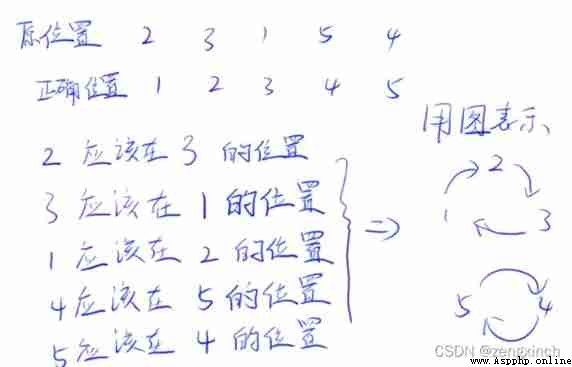 原位置 2 3 1 5 4
正确位置 1 2 3 4 5
用图表示
2 应该在 3 的位置
3 应该在 1 的位置
1 应该在 2 的位置
4 应该在 5 的位置
5 应该在 4 的位置
⇒
2
1 3
5 4
CSDN @zengxinch
www.Aspphp.online